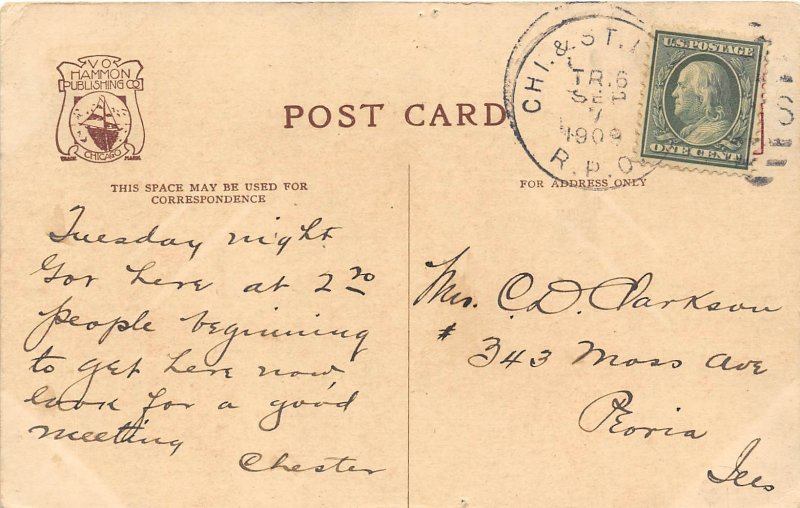 V O
HAMMON
PUBLISHING CO
TRADE MARK
CHICAGO
POST CARD
CHI. & ST. L
TR. 6
SEP
7
1909
R. P. O.
U.S. POSTAGE
ONE CENT
THIS SPACE MAY BE USED FOR
CORRESPONDENCE
FOR ADDRESS ONLY
Tuesday night
Got here at 2 20
people beginning
to get here now
look for a good
meeting
Chester
Mrs. C. D. Clarkson
# 343 Moss Ave
Peoria
Ills